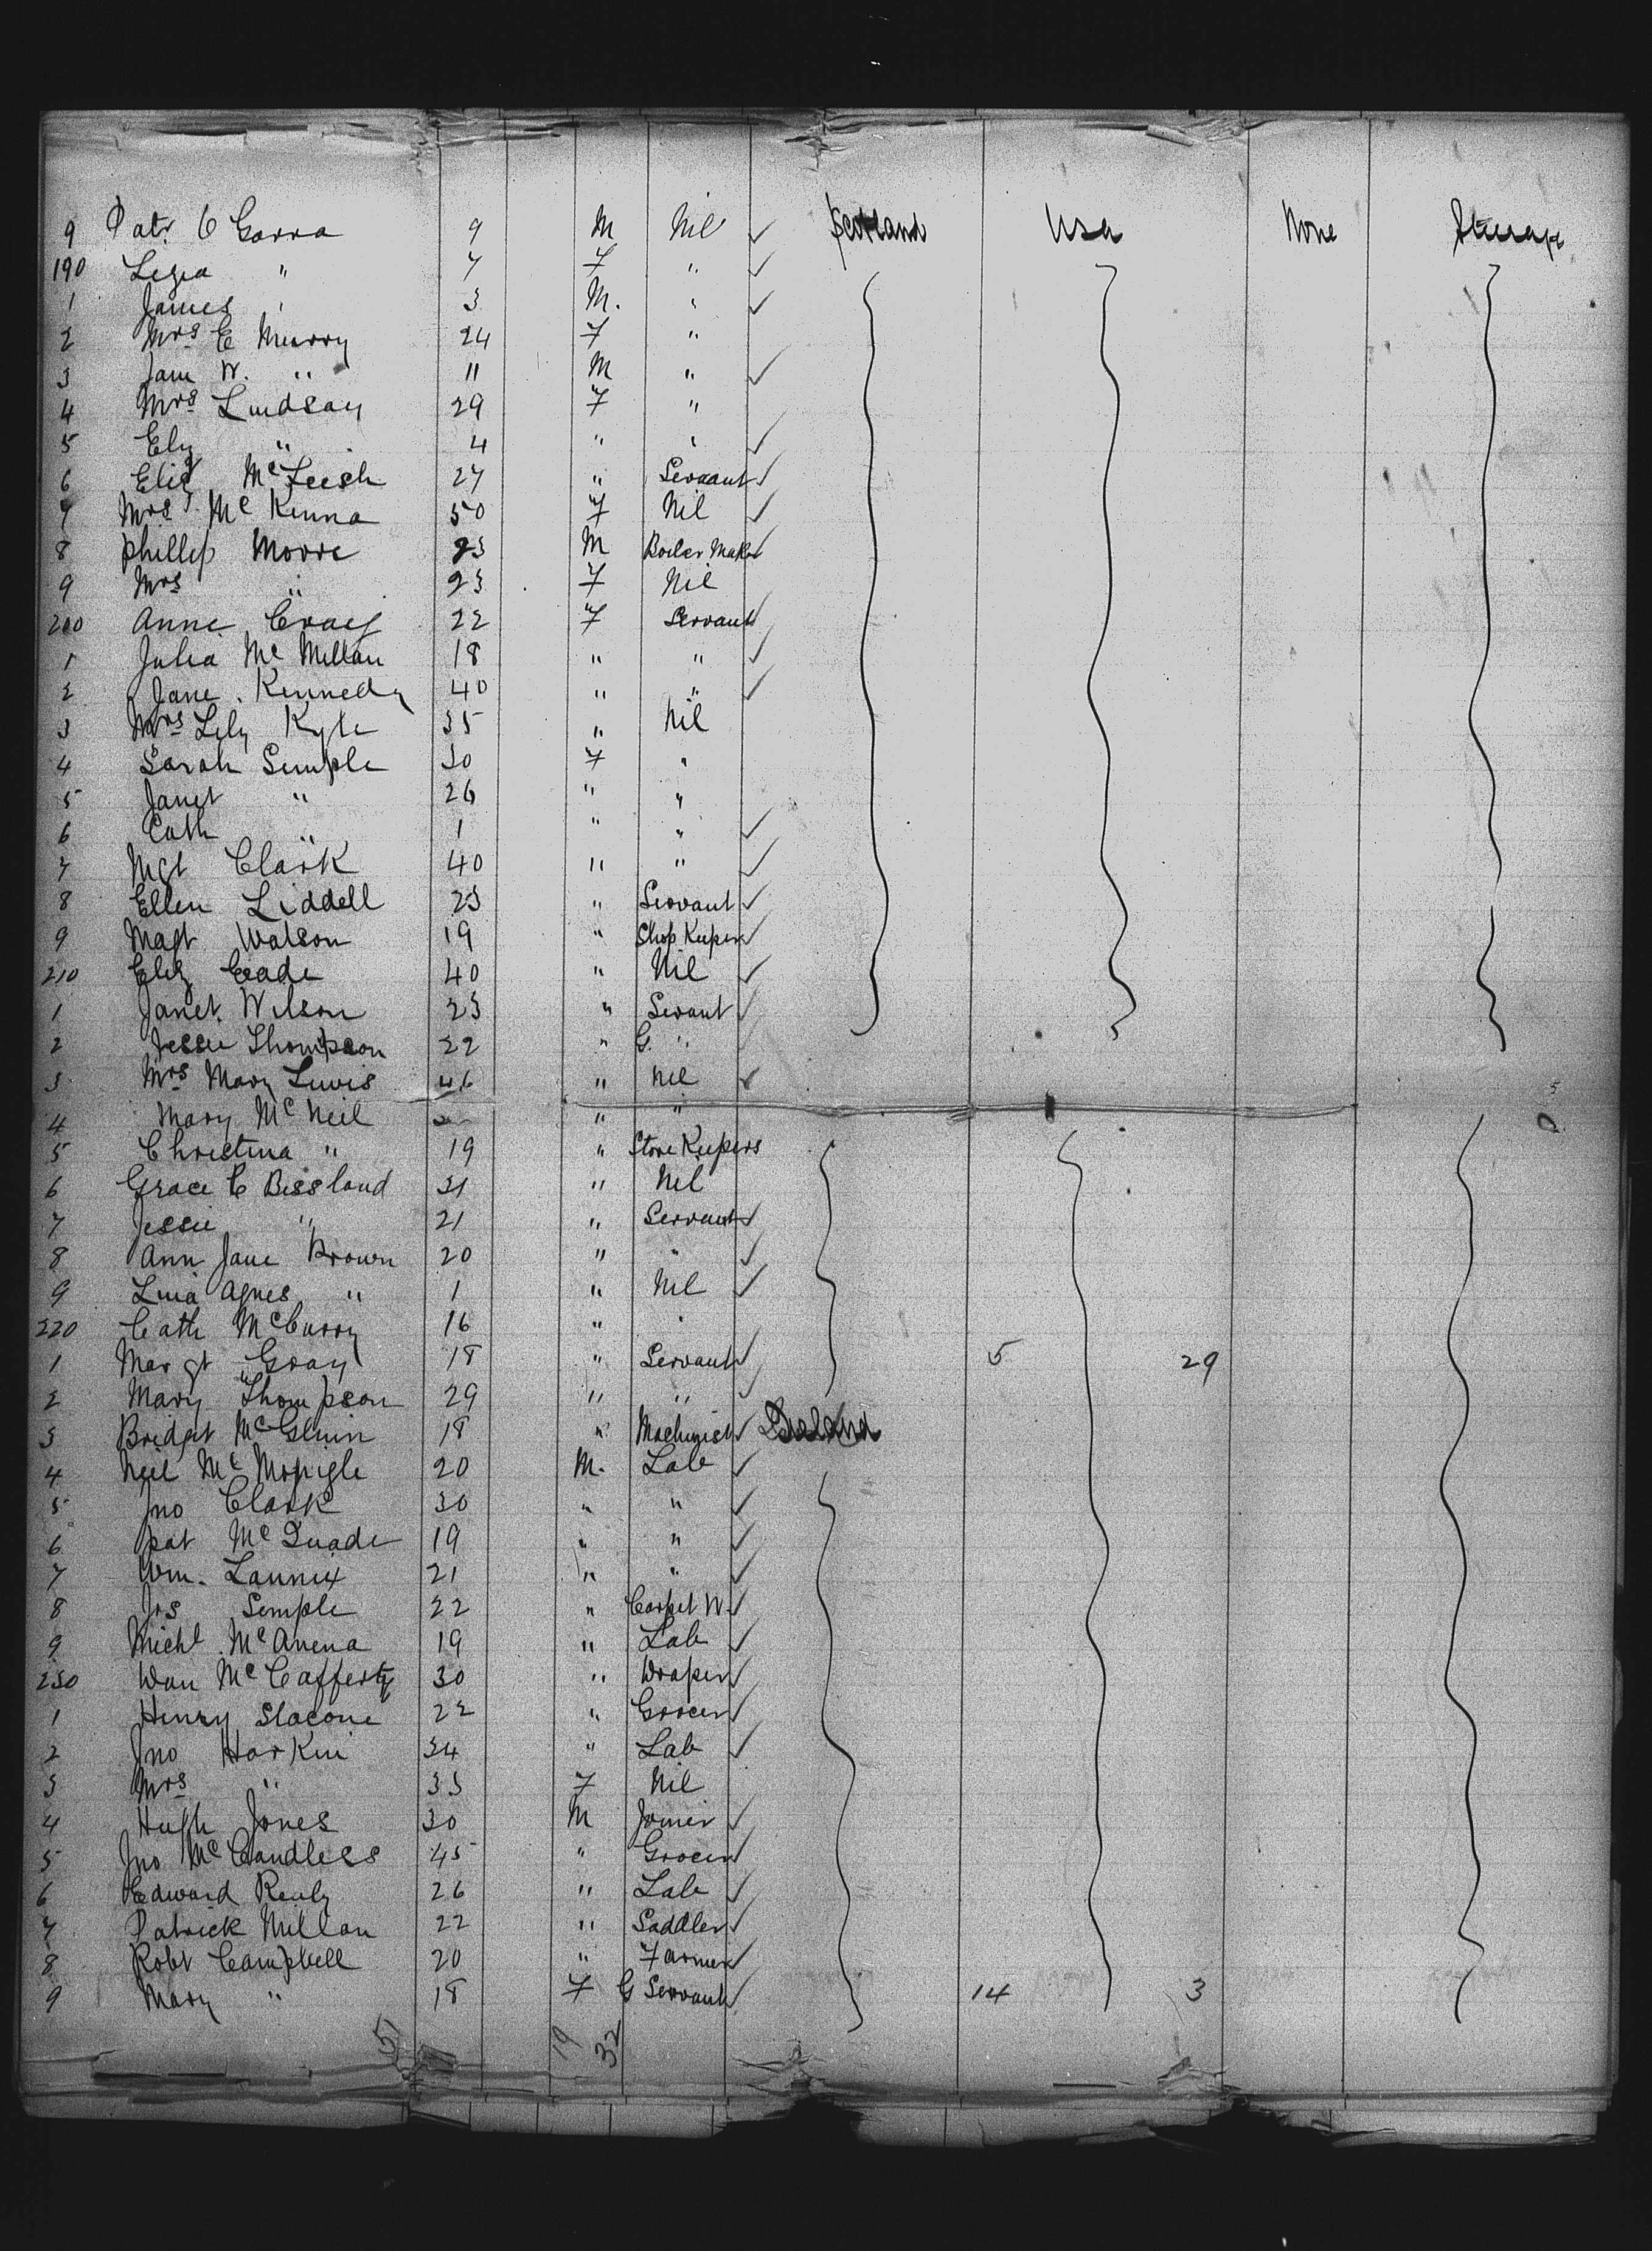 9 Patr O Garra 9 M Nil ✓ Scotland Usa None Steerage
190 Lizia " 7 F " ✓
1 James " 3 M. " ✓
2 Mrs E Murry 24 F "
3 Jam W. " 11 M " ✓
4 Mrs Lindsay 29 F "
5 Eliz " 4 " " ✓
6 Eliz McLeish 27 " Servant ✓
7 Mrs J. Mc Kenna 50 F Nil ✓
8 Phillip Moore 23 M Boiler Maker ✓
9 Mrs " 23 F Nil
200 Anne Craig 22 F Servant ✓
1 Julia Mc Millan 18 " " ✓
2 Jane Kennedy 40 " " ✓
3 Mrs Lily Kyle 35 " Nil
4 Sarah Semple 30 F "
5 Janet " 26 " "
6 Cath " 1 " " ✓
7 Mgt Clark 40 " " ✓
8 Ellen Liddell 23 " Servant ✓
9 Magt Watson 19 " Shop Keeper ✓
210 Eliz Eade 40 " Nil ✓
1 Janet Wilson 23 " Sevant ✓
2 Jessie Thompson 22 " G. " ✓
3 Mrs Mary Lewis 46 " Nil ✓
4 Mary McNeil " "
5 Christina " 19 " Store Keepers
6 Grace C Bissland 31 " Nil
7 Jessie " 21 " Servant ✓
8 Ann Jane Brown 20 " " ✓
9 Lina Agnes " 1 " Nil ✓
220 Cath McCurry 16 " "
1 Margt Gray 18 " Servant ✓ 5 29
2 Mary Thompson 29 " " ✓
3 Bridget McGlinn 18 " Machinist ✓ Ireland
4 Neil Mc Monigle 20 M. Lab ✓
5 Jno Clark 30 " " ✓
6 Pat McQuade 19 " " ✓
7 Wm. Lannix 21 " " ✓
8 Jos Semple 22 " Carpet W. ✓
9 Michl McAnena 19 " Lab ✓
230 Wm McCafferty 30 " Draper ✓
1 Henry Slacone 22 " Grocer ✓
2 Jno Harkin 34 " Lab ✓
3 Mrs " 33 F Nil
4 Hugh Jones 30 M Joiner ✓
5 Jno McCandless 45 " Grocer ✓
6 Edward Realy 26 " Lab ✓
7 Patrick Millan 22 " Saddler ✓
8 Robt Campbell 20 " Farmer ✓
9 Mary " 18 F G Servant ✓ 14 3
51 19 32